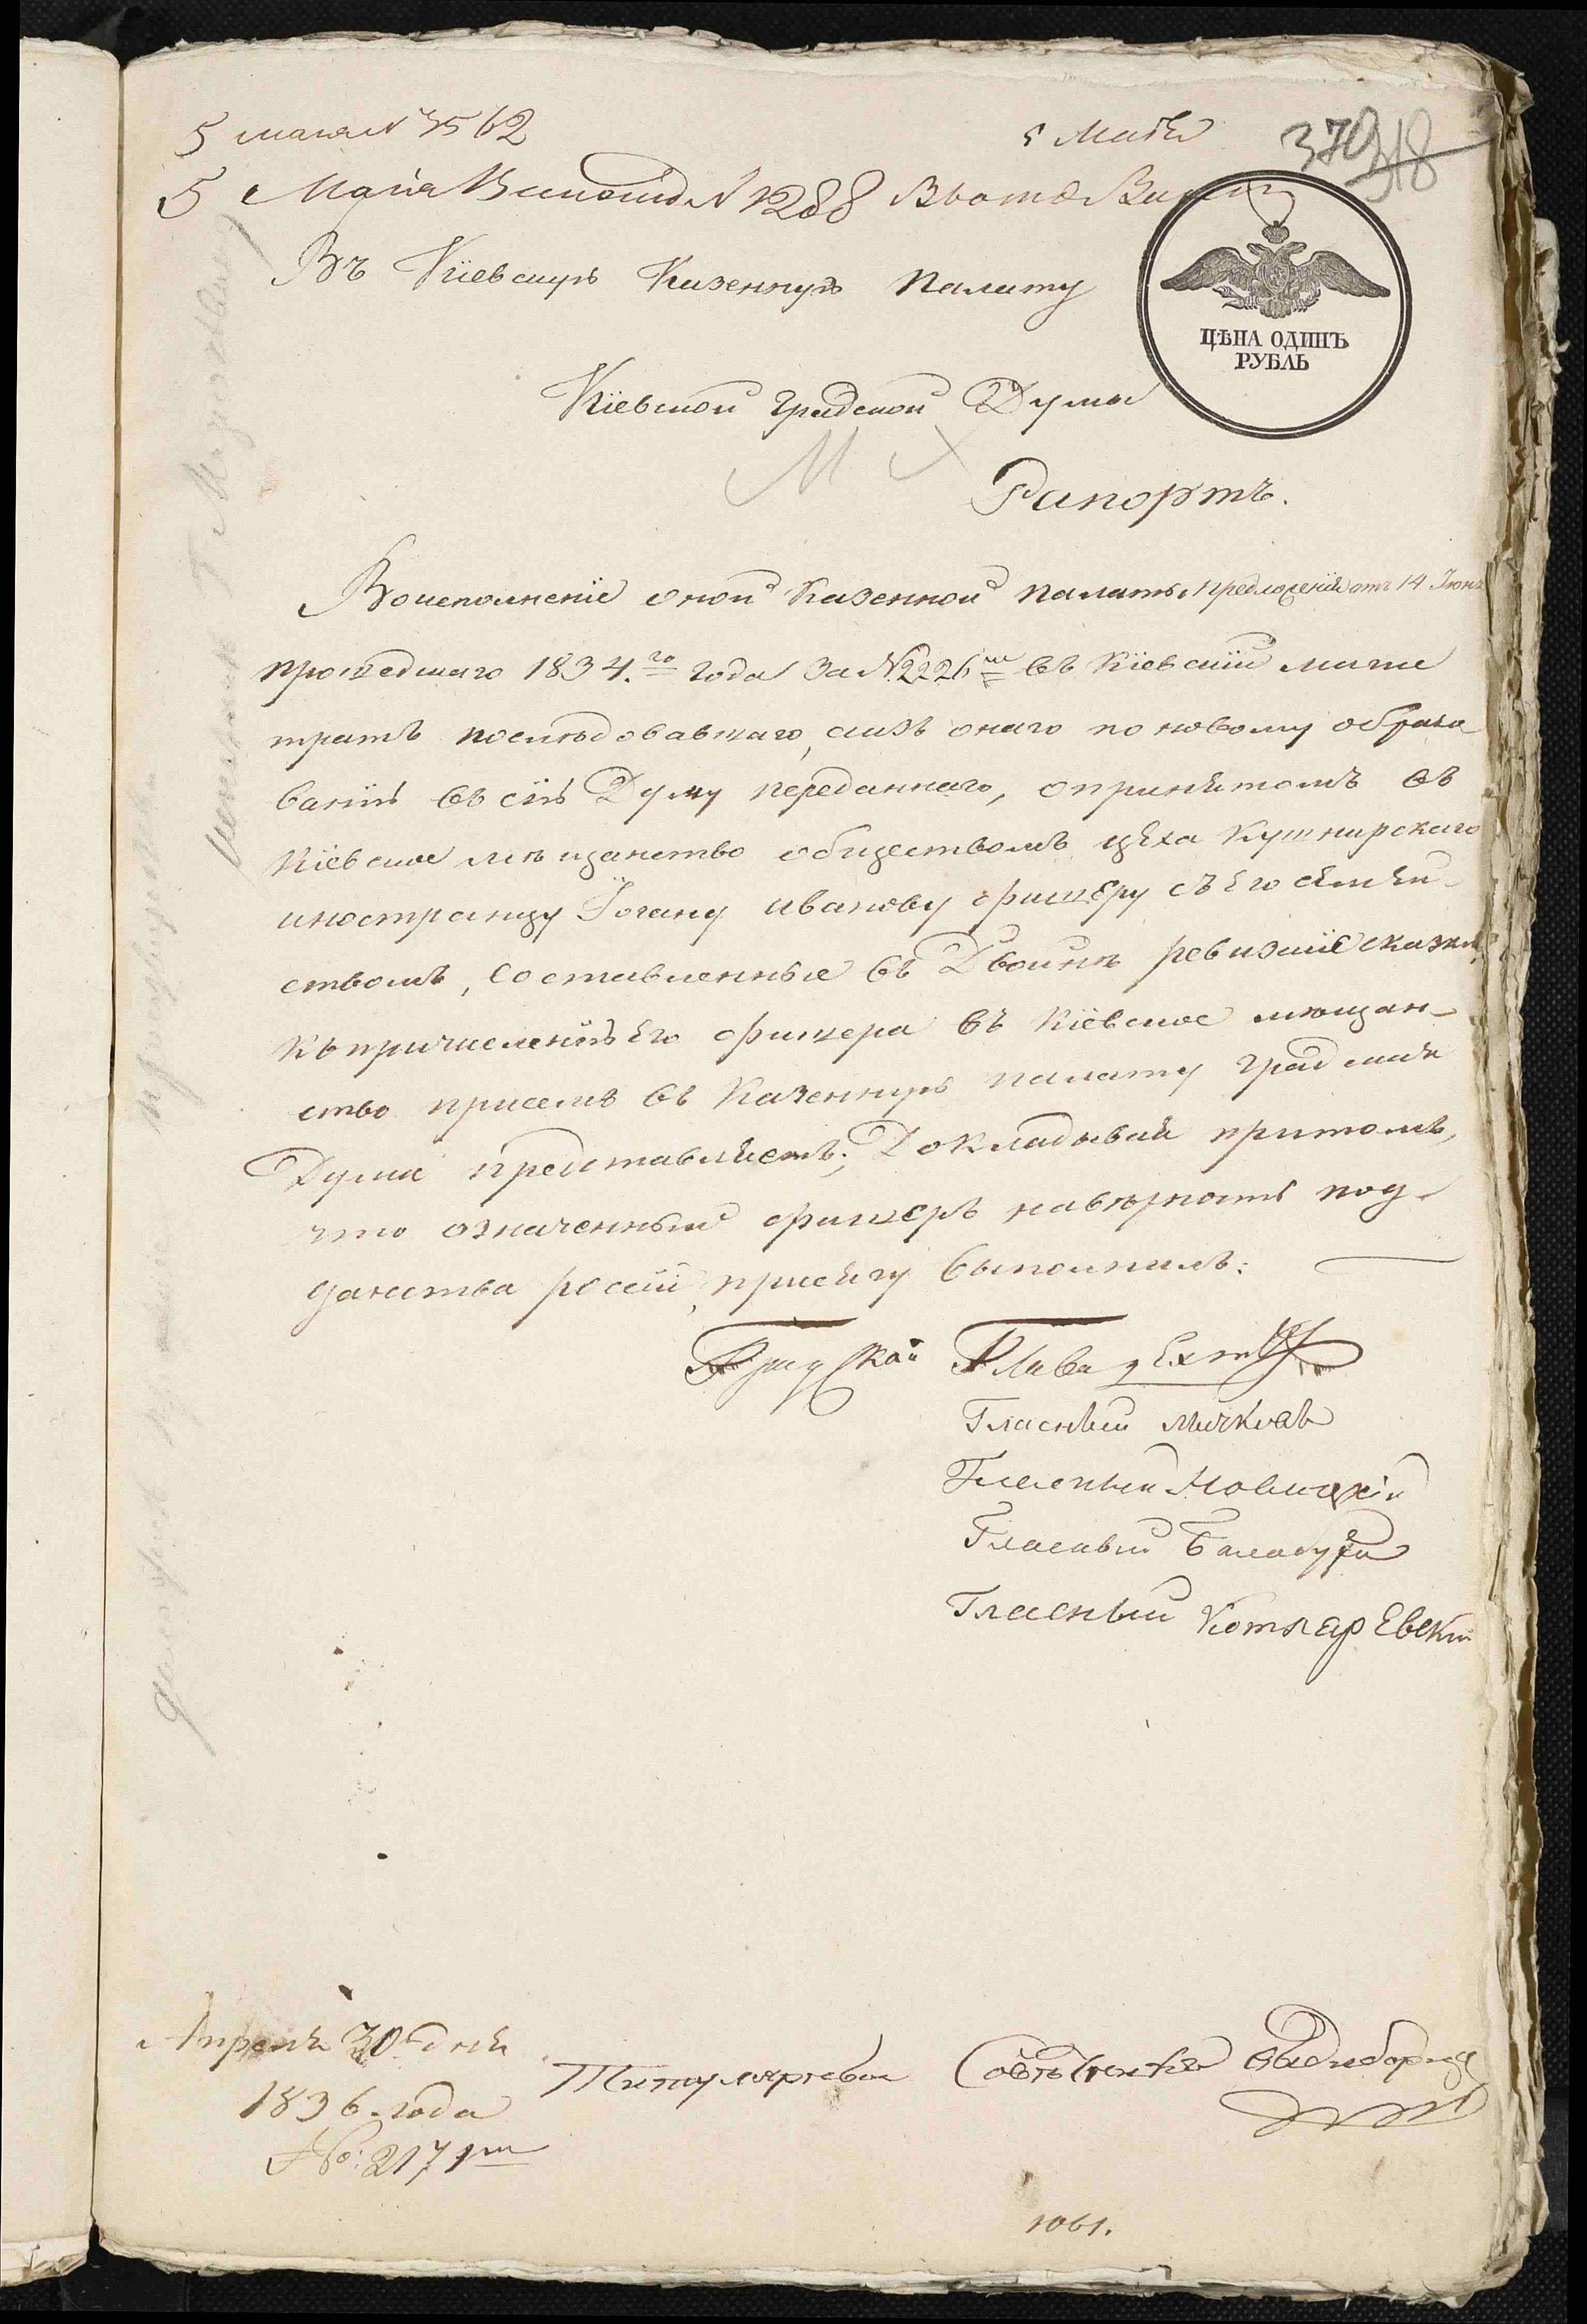 5 мая № 3562
5 Майя
5 Майя Вистолъ № 1288
379
318
Въ Кіевскую Казенную Палату
ЦѢНА ОДИНЪ
РУБЛЬ
Кіевской градской Думы
Рапортъ.
Воисполненіе оной Казенной палаты предложенія отъ 14 Іюня
прошедшаго 1834.го года за №2226мъ въ Кіевскій магис
тратъ послѣдовавшаго, аизъ онаго по новому образо
ванію въ сію Думу переданнаго, опринятомъ въ
Кіевское мѣщанство обществомъ цѣха Кушнирскаго
иностранцу Іогану иванову фишеру съ его семѣй
ствомъ, составленные въ Двойнѣ ревизскіе сказки
къ причисленію его фишера въ Кіевское мѣщан-
ство присемъ въ Казенную палату градская
Дума представляетъ; Докладывая притомъ,
что означенный фишеръ навѣрность под-
данства россіи, присягу выполнилъ:
Градской Глава
Гласный
Гласный Новицкій
Гласный Балабуха
Гласный Котляревскій
Апреля 30 дня
1836. года
№: 2171мъ
Титулярный Совѣтникъ
1061.